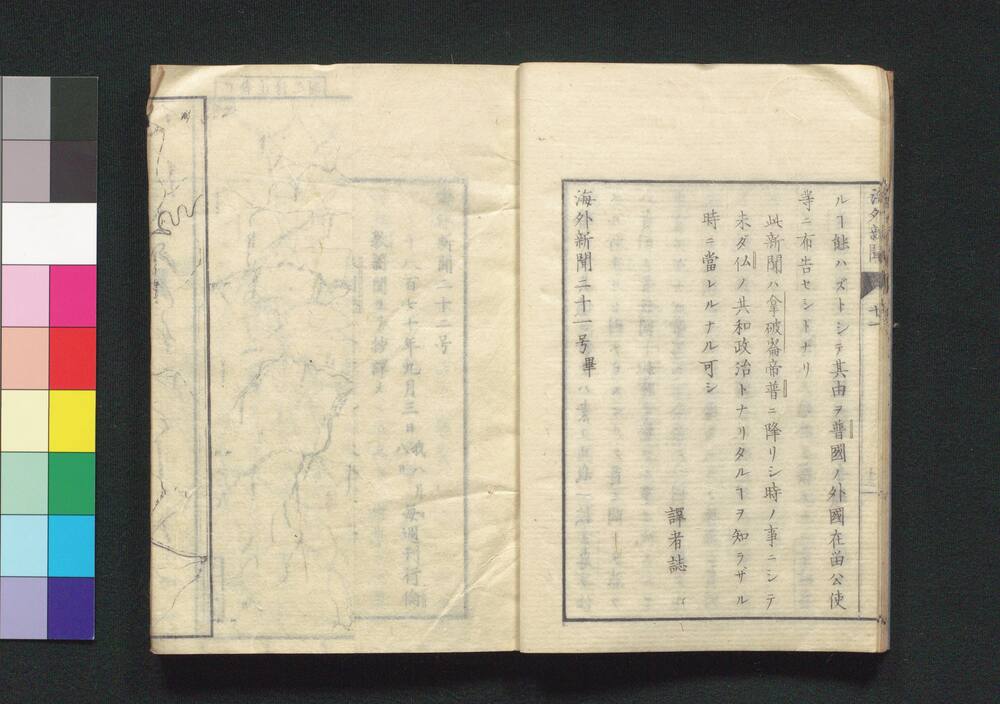 海外新聞
十一
ルヿ能ハズトシテ其由ヲ普國ノ外國在畄公使
等ニ布告セシトナリ
此新聞ハ拿破崙帝普ニ降リシ時ノ事ニシテ
未ダ仏ノ共和政治トナリタルヿヲ知ラザル
時ニ當レルナル可シ
譯者誌
海外新聞二十一号畢
新聞二十二号
百七十年九月三日
每週刊行